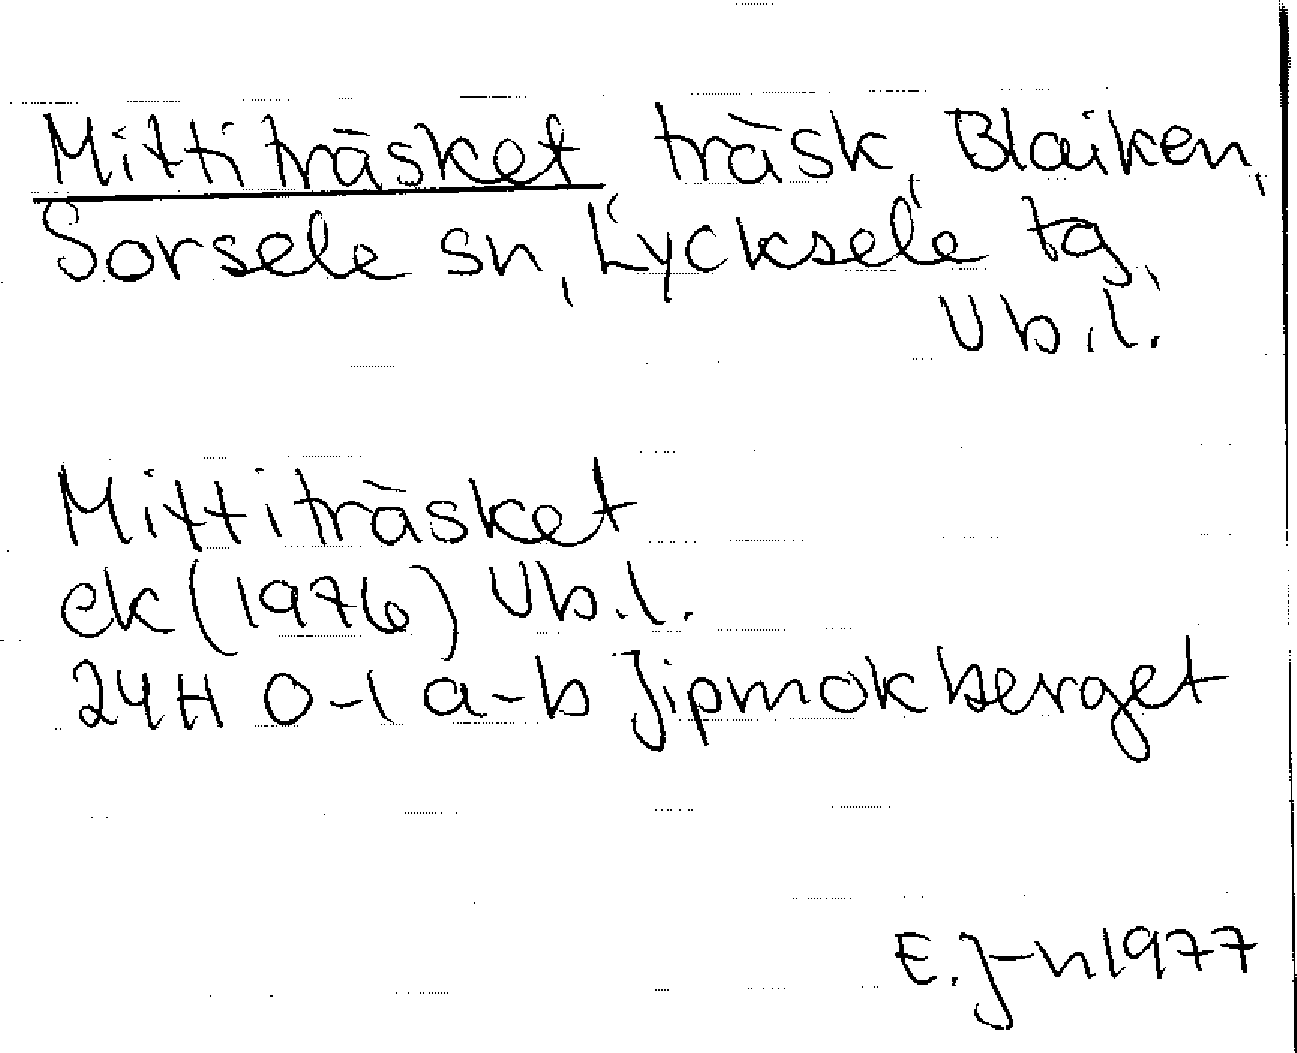 Mittiträsket träsk, Blaiken,
Sorsele sn, Lycksele tg,
Vb.l.
Mittiträsket
ek (1976) Vb.l.
24H 0-1 a-b Jipmokberget
E. J-n 1977